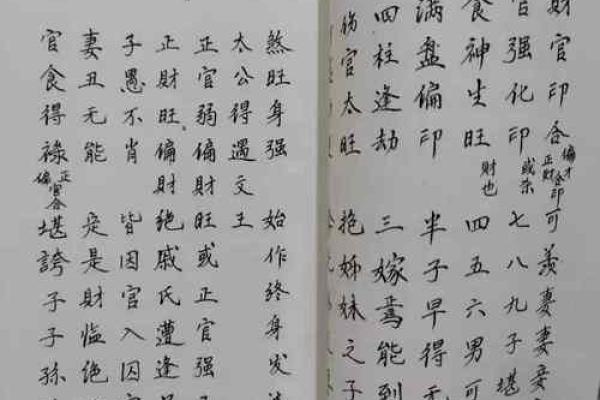 财官印合可羡妻妻妾
偏才
正財合印
官强化印七八九子堪
或杀
食神生旺四五六男可
财也
满盘偏印半子早得
四柱逢劫三嫁焉能到
伤官太旺抱姊妹之子
煞旺身强始作终身发
太公得遇文王
正官弱偏財旺或正官强
正財旺偏財绝戚氏遭逢
子愚不肖皆因官入囚
妻丑无能定是財临绝
官食得禄堪誇子子孫
正官合
偏